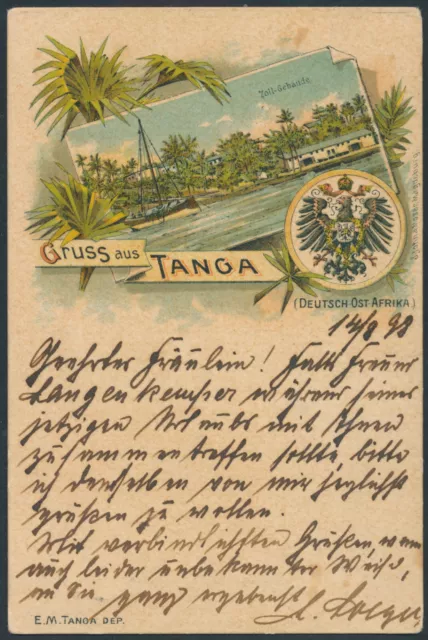 Zoll-Gebäude.
Gruss aus TANGA
(DEUTSCH-OST-AFRIKA)
14/8 98
Geehrtes Fräulein! Falls Freund
Langenkemper während seines
jetzigen Urlaubs mit Ihnen
zusammentreffen sollte bitte
ich denselben von mir herzlichst
grüßen zu wollen.
Mit verbindlichsten Grüßen, wenn
auch leider unbekannter Weise,
an Sie
ganz ergebenst
E.M. TANGA DEP.